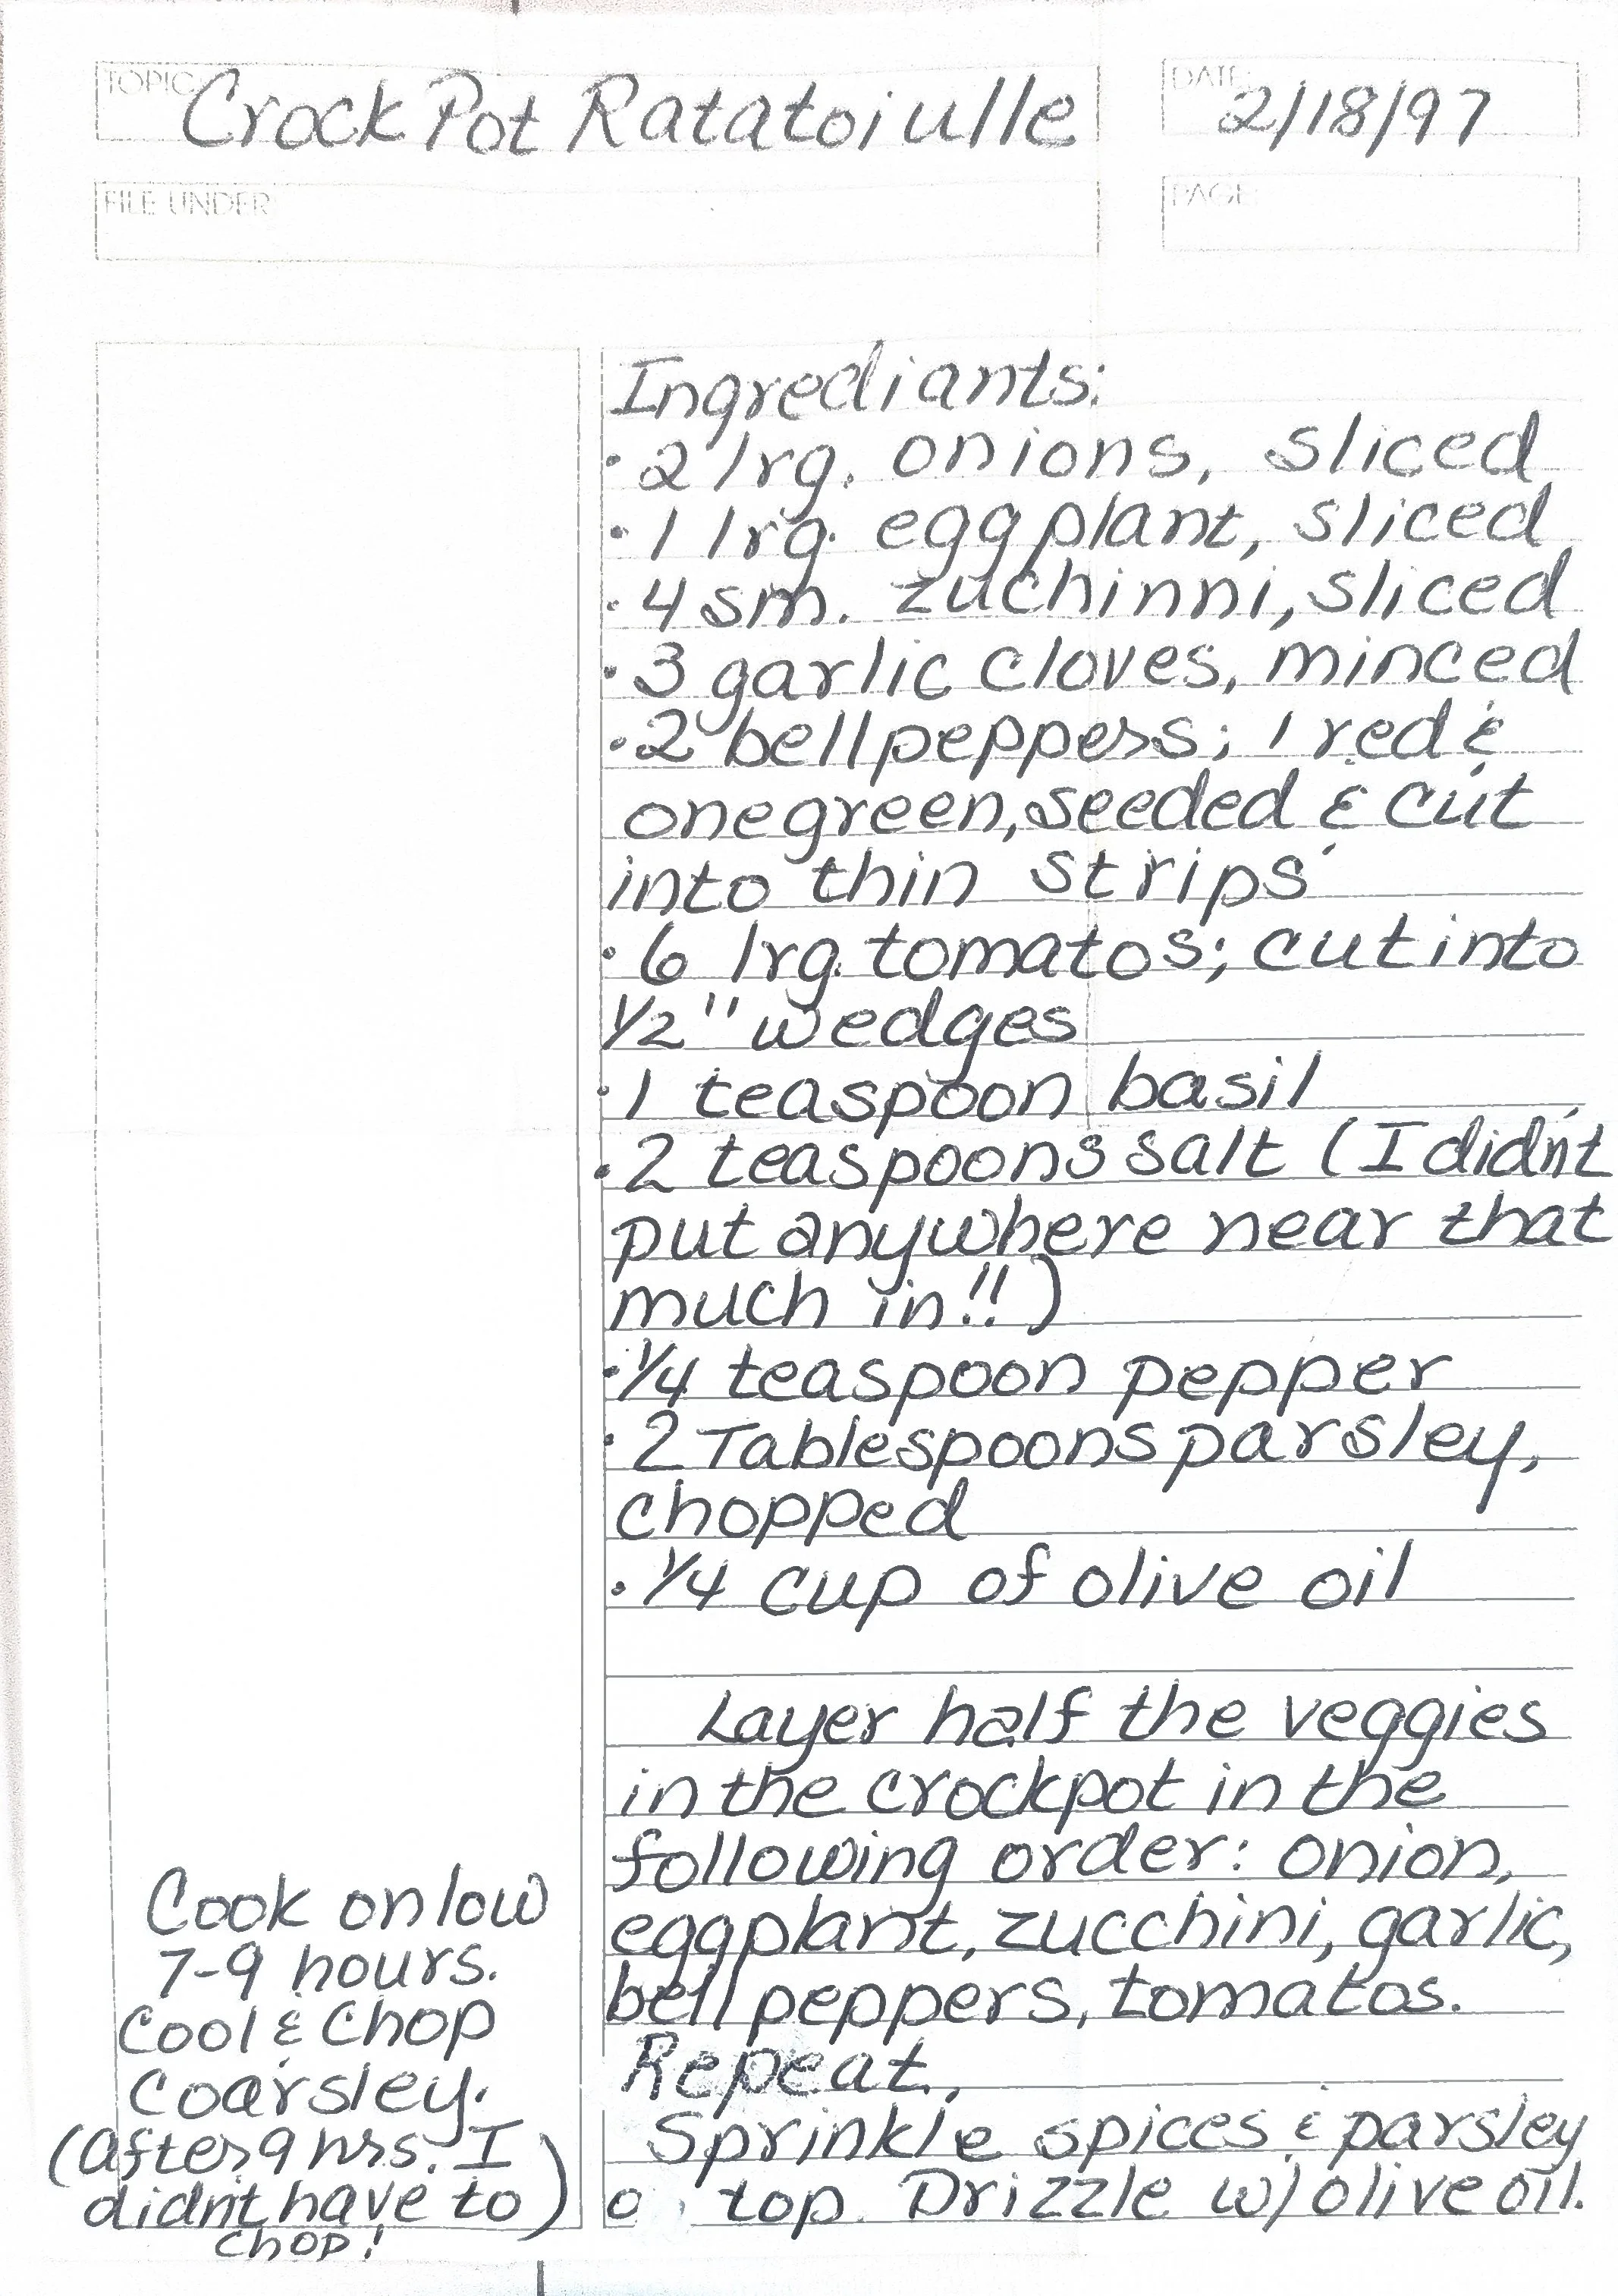 TOPIC: Crock Pot Ratatoiulle
DATE: 2/18/97
FILE UNDER:
PAGE:
Ingrediants:
· 2 lrg. onions, sliced
· 1 lrg. eggplant, sliced
· 4 sm. zuchinni, sliced
· 3 garlic cloves, minced
· 2 bell peppers; 1 red &
one green, seeded & cut
into thin strips
· 6 lrg. tomatos; cut into
1/2" wedges
· 1 teaspoon basil
· 2 teaspoons salt (I didn't
put anywhere near that
much in!!)
· 1/4 teaspoon pepper
· 2 Tablespoons parsley,
chopped
· 1/4 cup of olive oil
Layer half the veggies
in the crockpot in the
following order: onion,
eggplant, zucchini, garlic,
bell peppers, tomatos.
Repeat.
Sprinkle spices & parsley
o top. Drizzle w/ olive oil.
Cook on low
7-9 hours.
Cool & Chop
Coarsley.
(after 9 hrs. I
didn't have to)
chop!